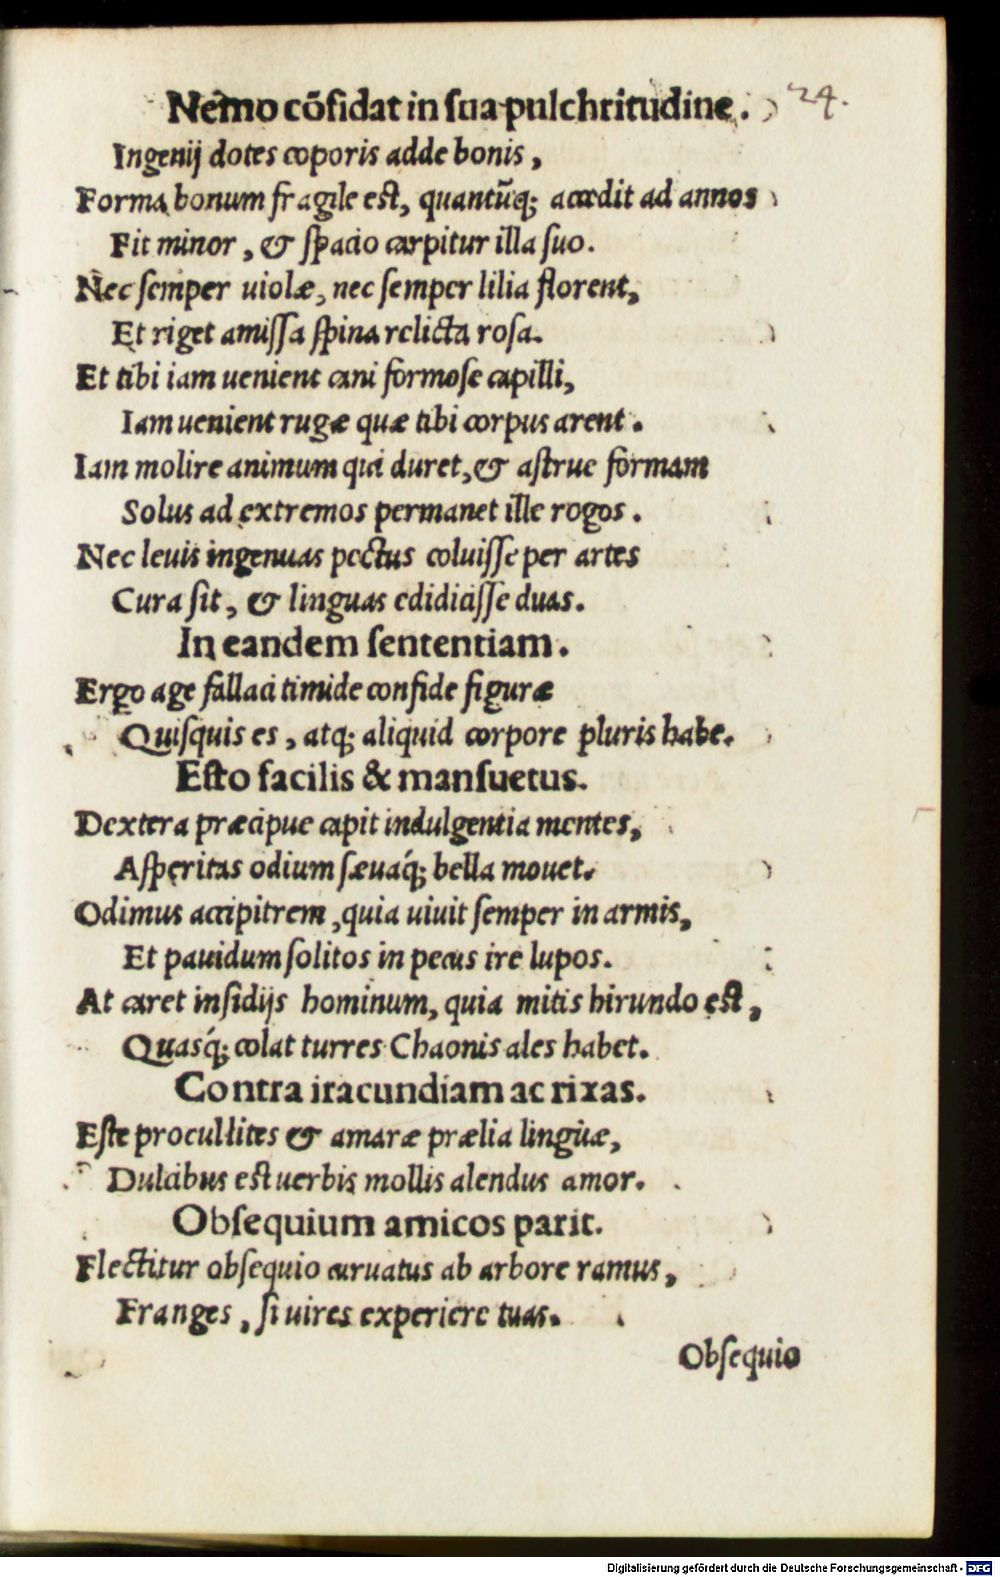 Nemo cōfidat in sua pulchritudine. 24.
Ingenij dotes coporis adde bonis,
Forma bonum fragile est, quantūq; accedit ad annos
Fit minor, & spacio carpitur illa suo.
Nec semper uiolæ, nec semper lilia florent,
Et riget amissa spina relicta rosa.
Et tibi iam uenient cani formose capilli,
Iam uenient rugæ quæ tibi corpus arent.
Iam molire animum qui duret, & astrue formam
Solus ad extremos permanet ille rogos.
Nec leuis ingenuas pectus coluisse per artes
Cura sit, & linguas edidicisse duas.
In eandem sententiam.
Ergo age fallaci timide confide figuræ
Quisquis es, atq; aliquid corpore pluris habe.
Esto facilis & mansuetus.
Dextera præcipue capit indulgentia mentes,
Asperitas odium sæuaq́; bella mouet.
Odimus accipitrem, quia uiuit semper in armis,
Et pauidum solitos in pecus ire lupos.
At caret insidijs hominum, quia mitis hirundo est,
Quasq́; colat turres Chaonis ales habet.
Contra iracundiam ac rixas.
Este procul lites & amaræ prælia linguæ,
Dulcibus est uerbis mollis alendus amor.
Obsequium amicos parit.
Flectitur obsequio curuatus ab arbore ramus,
Franges, si uires experiere tuas.
Obsequio
Digitalisierung gefördert durch die Deutsche Forschungsgemeinschaft - DFG